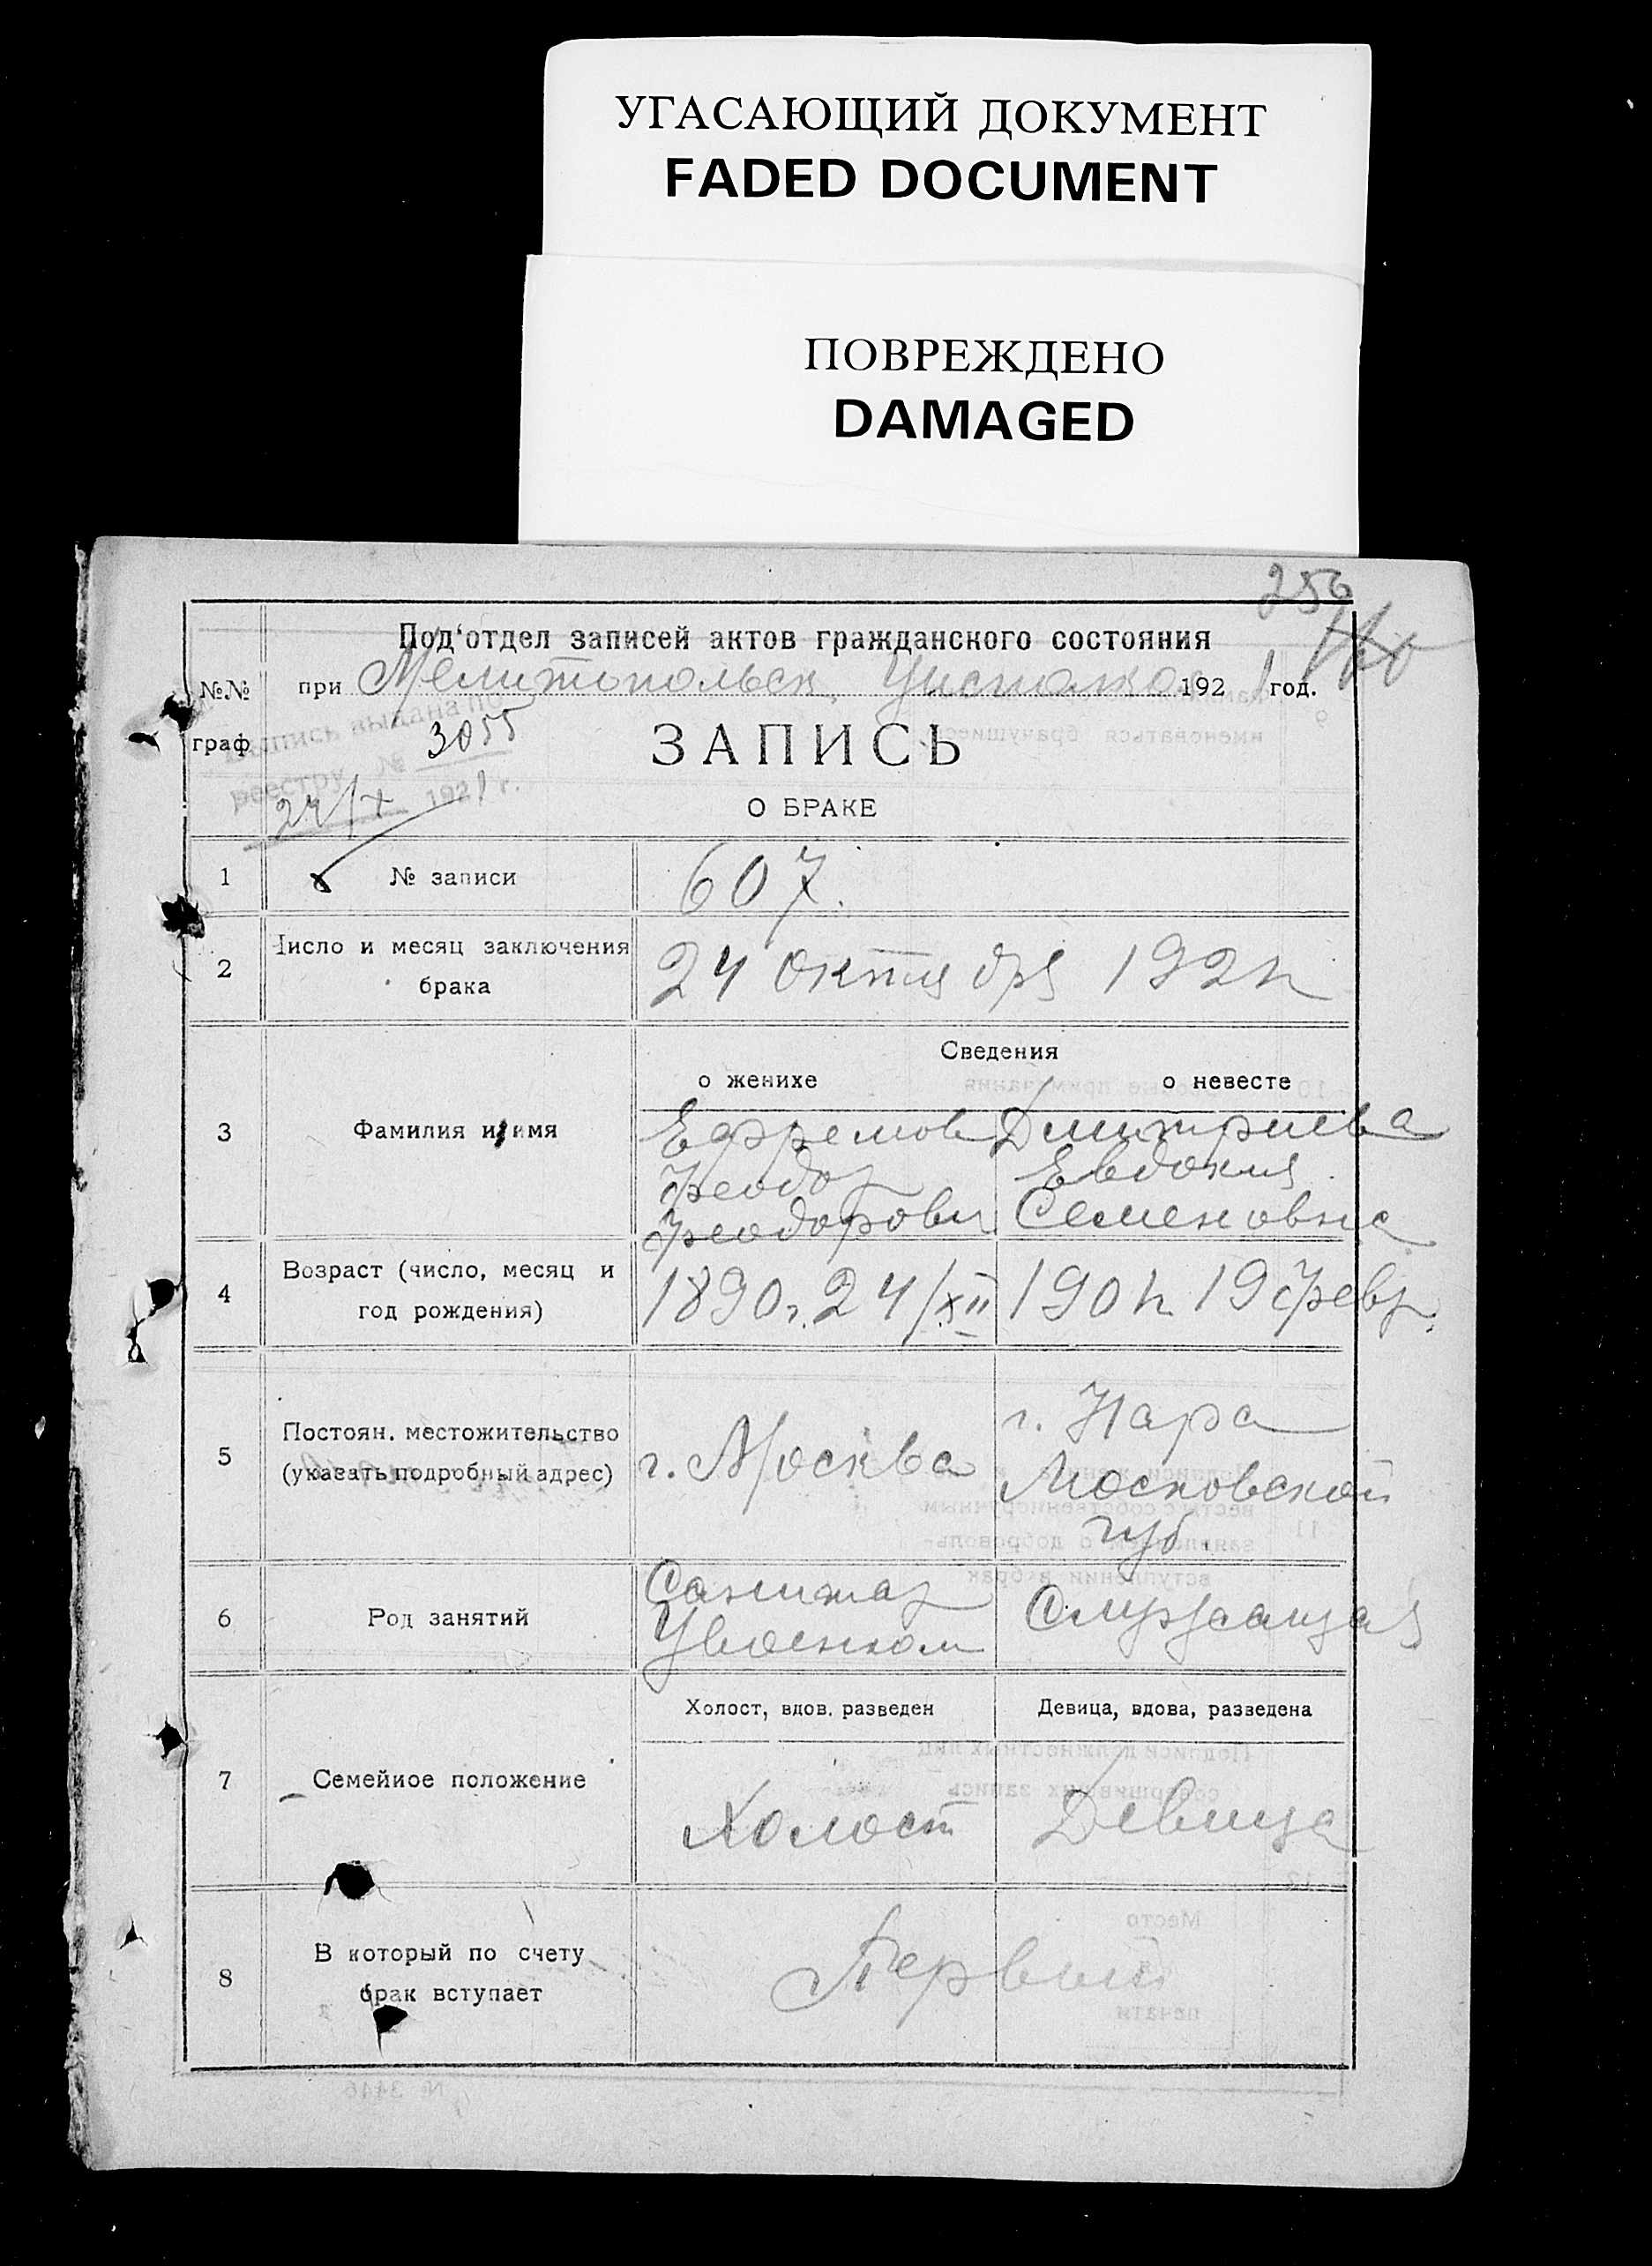 УГАСАЮЩИЙ ДОКУМЕНТ
FADED DOCUMENT
ПОВРЕЖДЕНО
DAMAGED
250
Под'отдел записей актов гражданского состояния
№№ граф
при Мелитопольск. Уисполко. 1921 год.
Выпись выдана по
реестру № 3055
24/X 1921 г.
ЗАПИСЬ
О БРАКЕ
1 № записи 607.
2 Число и месяц заключения брака 24 октября 1921 г.
Сведения
о женихе о невесте
3 Фамилия и имя
Ефремов Дмитриева
Феодор Евдокия
Феодорович Семеновна
4 Возраст (число, месяц и год рождения) 1890 г. 24/XII 1901 г. 19 февр.
5 Постоян. местожительство (указать подробный адрес)
г. Москва г. Нара
Московской
губ.
6 Род занятий
Санитар Служащая
Увоенком
7 Семейное положение
Холост, вдов. разведен Девица, вдова, разведена
Холост Девица
8 В который по счету брак вступает Первый